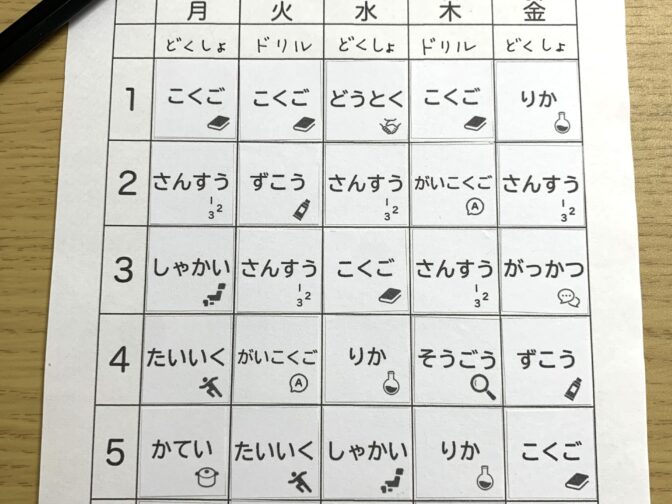 月 火 水 木 金
どくしょ ドリル どくしょ ドリル どくしょ
1 こくご こくご どうとく こくご りか
2 さんすう ずこう さんすう がいこくご さんすう
1 2 3 1 2 3 A 1 2 3
3 しゃかい さんすう こくご さんすう がっかつ
1 2 3 1 2 3
4 たいいく がいこくご りか そうごう ずこう
A
5 かてい たいいく しゃかい りか こくご